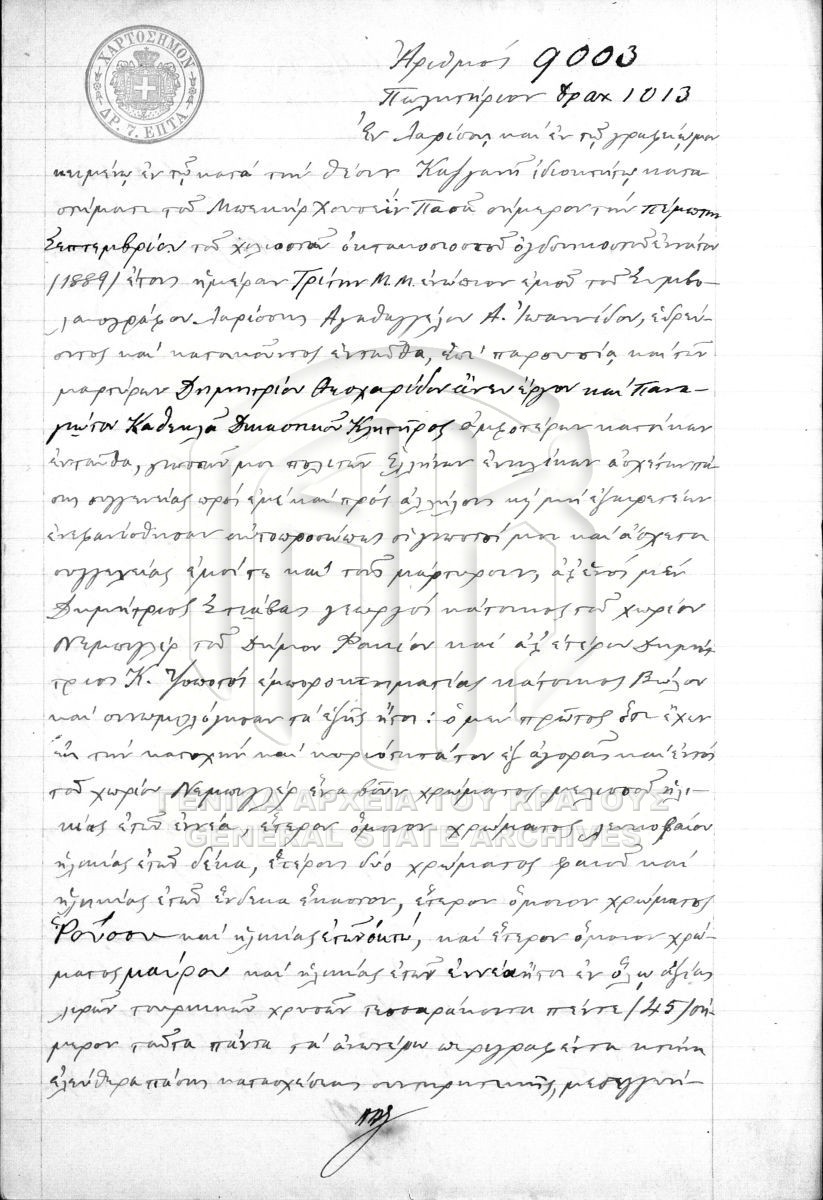 ΧΑΡΤΟΣΗΜΟΝ
ΔΡ. 7. ΕΠΤΑ
Ἀριθμός 9003
Πωλητήριον δραχ 1013
Ἐν Λαρίσσῃ καί ἐν τῷ γραφείῳ μου
κειμένῳ ἐν τῷ κατά τήν θέσιν ἰδιοκτήτῳ κατα
στήματι τοῦ Μπεκήρ Χουσεΐν Πασᾶ σήμερον τήν πέμπτην
Σεπτεμβρίου τοῦ χιλιοστοῦ ὀκτακοσιοστοῦ ὀγδοηκοστοῦ ἐννάτου
/1889/ ἔτους ἡμέραν Τρίτην Μ.Μ. ἐνώπιον ἐμοῦ τοῦ Συμβο-
λαιογράφου Λαρίσσης Ἀγαθαγγέλου Α. Ἰωαννίδου, ἑδρεύ-
οντος καί κατοικοῦντος ἐνταῦθα, ἐπί παρουσίᾳ καί τῶν
μαρτύρων Δημητρίου Θεοχαρίδου ἄνευ ἔργου καί Πανα-
γιώτου Δικαστικοῦ Κλητῆρος ἀμφοτέρων κατοίκων
ἐνταῦθα, γνωστῶν μοι πολιτῶν Ἑλλήνων ἐνηλίκων ἀσχέτων πά
σης συγγενείας πρός ἐμέ καί πρός ἀλλήλους κ μή ἐξαιρετέων
ἐνεφανίσθησαν αὐτοπροσώπως οἱ γνωστοί μοι καί ἄσχετοι
συγγενείας ἐμοί τε καί τοῖς μάρτυσιν, ἀφ' ἑνός μέν
Δημήτριος γεωργός κάτοικος τοῦ χωρίου
Νεμπεγλέρ τοῦ Δήμου Φακίου καί ἀφ' ἑτέρου Δημή
τριος Κ. Τοποτός ἐμποροκτηματίας κάτοικος Βώλου
καί συνωμολόγησαν τά ἑξῆς ἤτοι: ὁ μέν πρῶτος ὅτι ἔχων
εἰς τήν κατοχήν καί κυριότητά του ἐξ ἀγορᾶς καί ἐντός
τοῦ χωρίου Νεμπεγλέρ ἕνα βοῦν χρώματος μελισσοῦ ἡλι-
κίας ἐτῶν ἐννέα, ἕτερον ὅμοιον χρώματος
ἡλικίας ἐτῶν δέκα, ἑτέρους δύο χρώματος φαιοῦ καί
ἡλικίας ἐτῶν ἕνδεκα ἕκαστον, ἕτερον ὅμοιον χρώματος
Ῥούσου καί ἡλικίας ἐτῶν ὀκτώ, καί ἕτερον ὅμοιον χρώ-
ματος μαύρου καί ἡλικίας ἐτῶν ἐννέα ἤτοι ἐν ὅλῳ ἀξίας
λιρῶν τουρκικῶν χρυσῶν τεσσαράκοντα πέντε /45/ σή-
μερον ταῦτα πάντα τά ἀνωτέρω περιγραφέντα κτήνη
ἐλεύθερα πάσης κατασχέσεως συντηρητικῆς, μεσεγγυή-
ΓΕΝΙΚΑ ΑΡΧΕΙΑ ΤΟΥ ΚΡΑΤΟΥΣ
GENERAL STATE ARCHIVES